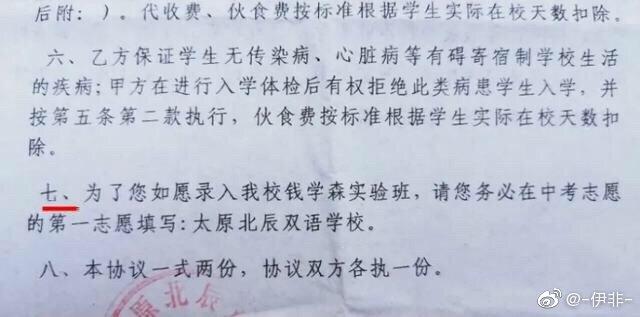 后附：）。代收费、伙食费按标准根据学生实际在校天数扣除。
六、乙方保证学生无传染病、心脏病等有碍寄宿制学校生活
的疾病；甲方在进行入学体检后有权拒绝此类病患学生入学，并
按第五条第二款执行，伙食费按标准根据学生实际在校天数扣
除。
七、为了您如愿录入我校钱学森实验班，请您务必在中考志愿
的第一志愿填写：太原北辰双语学校。
八、本协议一式两份，协议双方各执一份。
原北辰
@-伊菲-